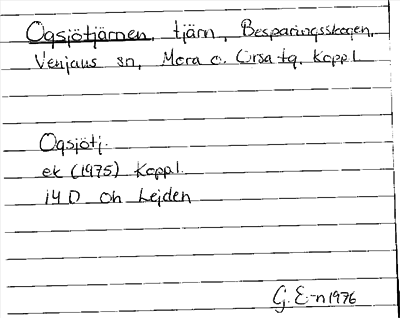 Ogsjötjärnen, tjärn, Besparingsskogen,
Venjans sn, Mora o. Orsa tg, Koppl
Ogsjötj.
ek (1975) Koppl.
14 D Oh Lejden
G. E-n 1976